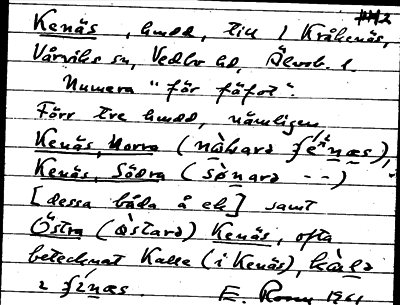 Kenäs, hmdd, till 1 Kråkenäs,
Vårviks sn, Vedbo hd, Älvsb. l.
Numera "för fäfot".
Förr tre hmdd, nämligen
Kenäs, Norra (nàhara ʃénæs),
Kenäs, Södra (sònara --)
[dessa båda å ek] samt
Östra (òstara) Kenäs, ofta
betecknat Kalle (i Kenäs),
i ʃínæs. E. 1961